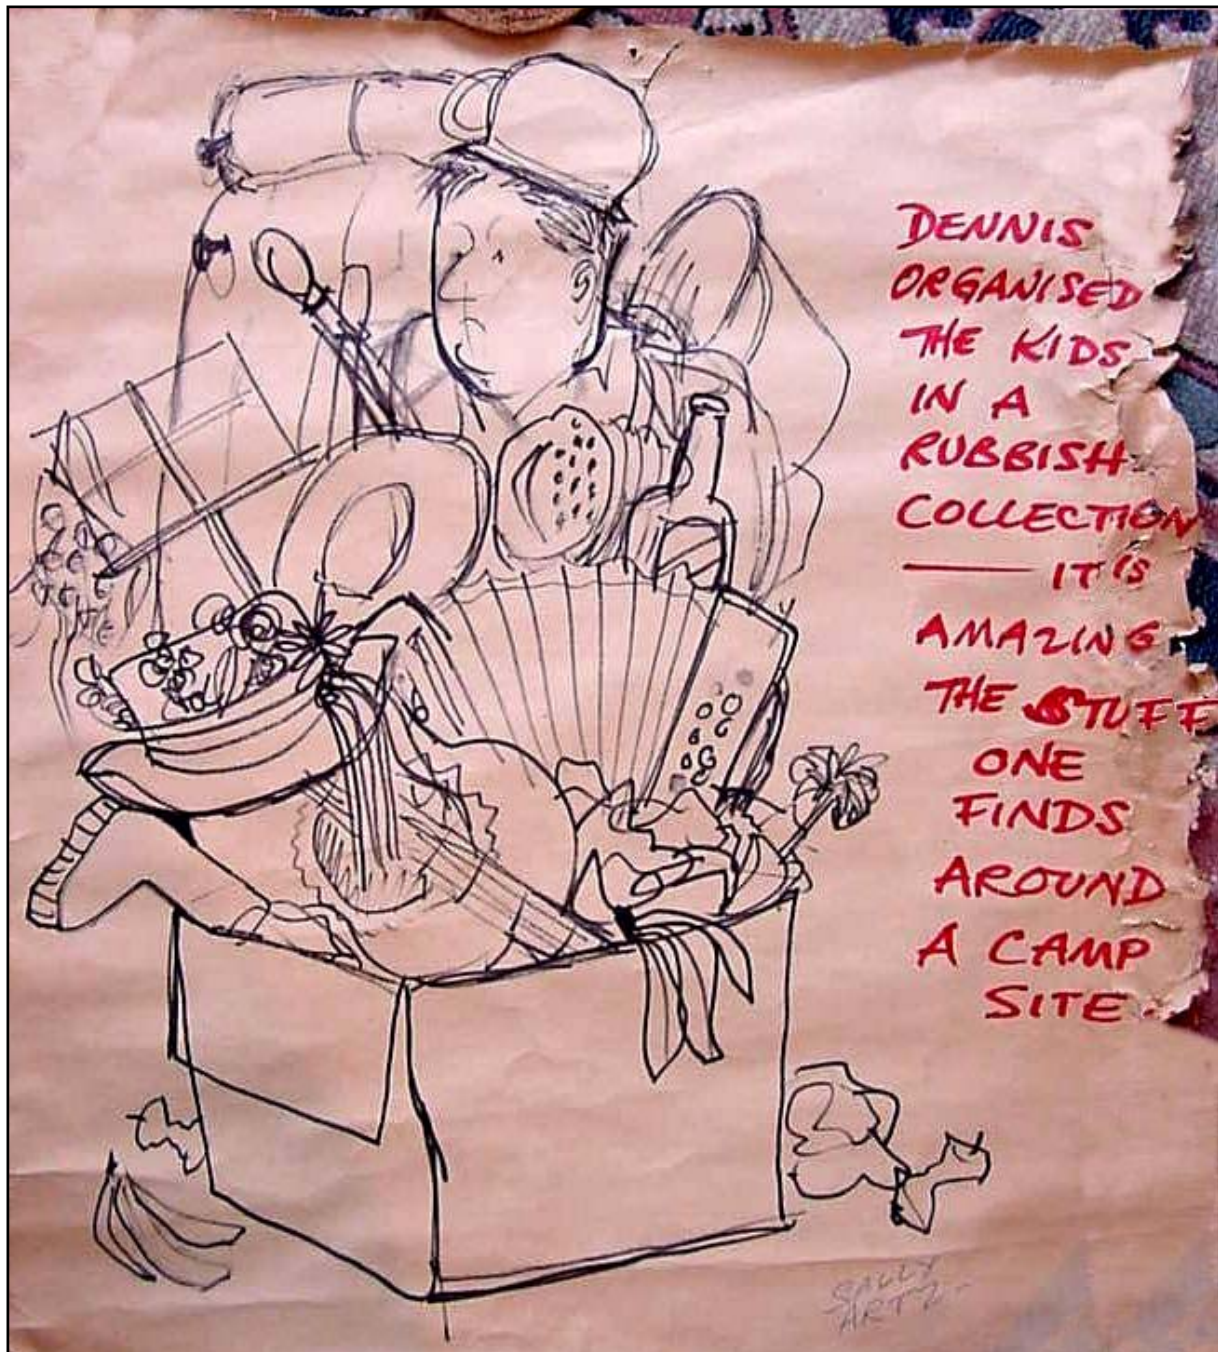 DENNIS
ORGANISED
THE KIDS
IN A
RUBBISH
COLLECTION
— IT IS
AMAZING
THE STUFF
ONE
FINDS
AROUND
A CAMP
SITE.
SALLY
ARTZ